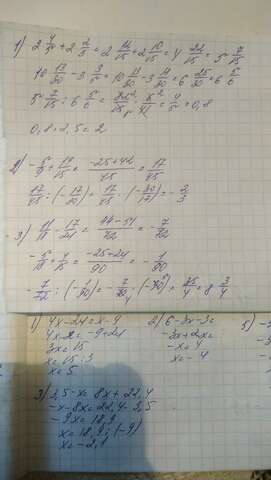 1) 2 4/5 + 2 2/3 = 2 12/15 + 2 10/15 = 4 22/15 = 5 7/15
10 13/30 - 3 3/5 = 10 13/30 - 3 18/30 = 6 25/30 = 6 5/6
5 7/15 : 6 5/6 = 82/15 · 6/41 = 4/5 = 0,8
0,8 · 2,5 = 2
2) - 5/9 + 14/15 = -25+42/45 = 17/45
17/45 : (- 17/30) = 17/45 · (- 30/17) = - 2/3
3) 11/18 - 17/24 = 44-51/72 = - 7/72
- 5/18 + 4/15 = -25+24/90 = - 1/90
- 7/72 : (- 1/90) = - 7/72 · (-90) = 35/4 = 8 3/4
1) 4x-24=x-9
4x-x=-9+24
3x=15
x=15:3
x=5
2) 6-3x-3=
-3x+2x=
-x=4
x=-4
5)
3) 3,5-x=8x+22,4
-x-8x=22,4-3,5
-9x=18,9
x=18,9:(-9)
x=-2,1